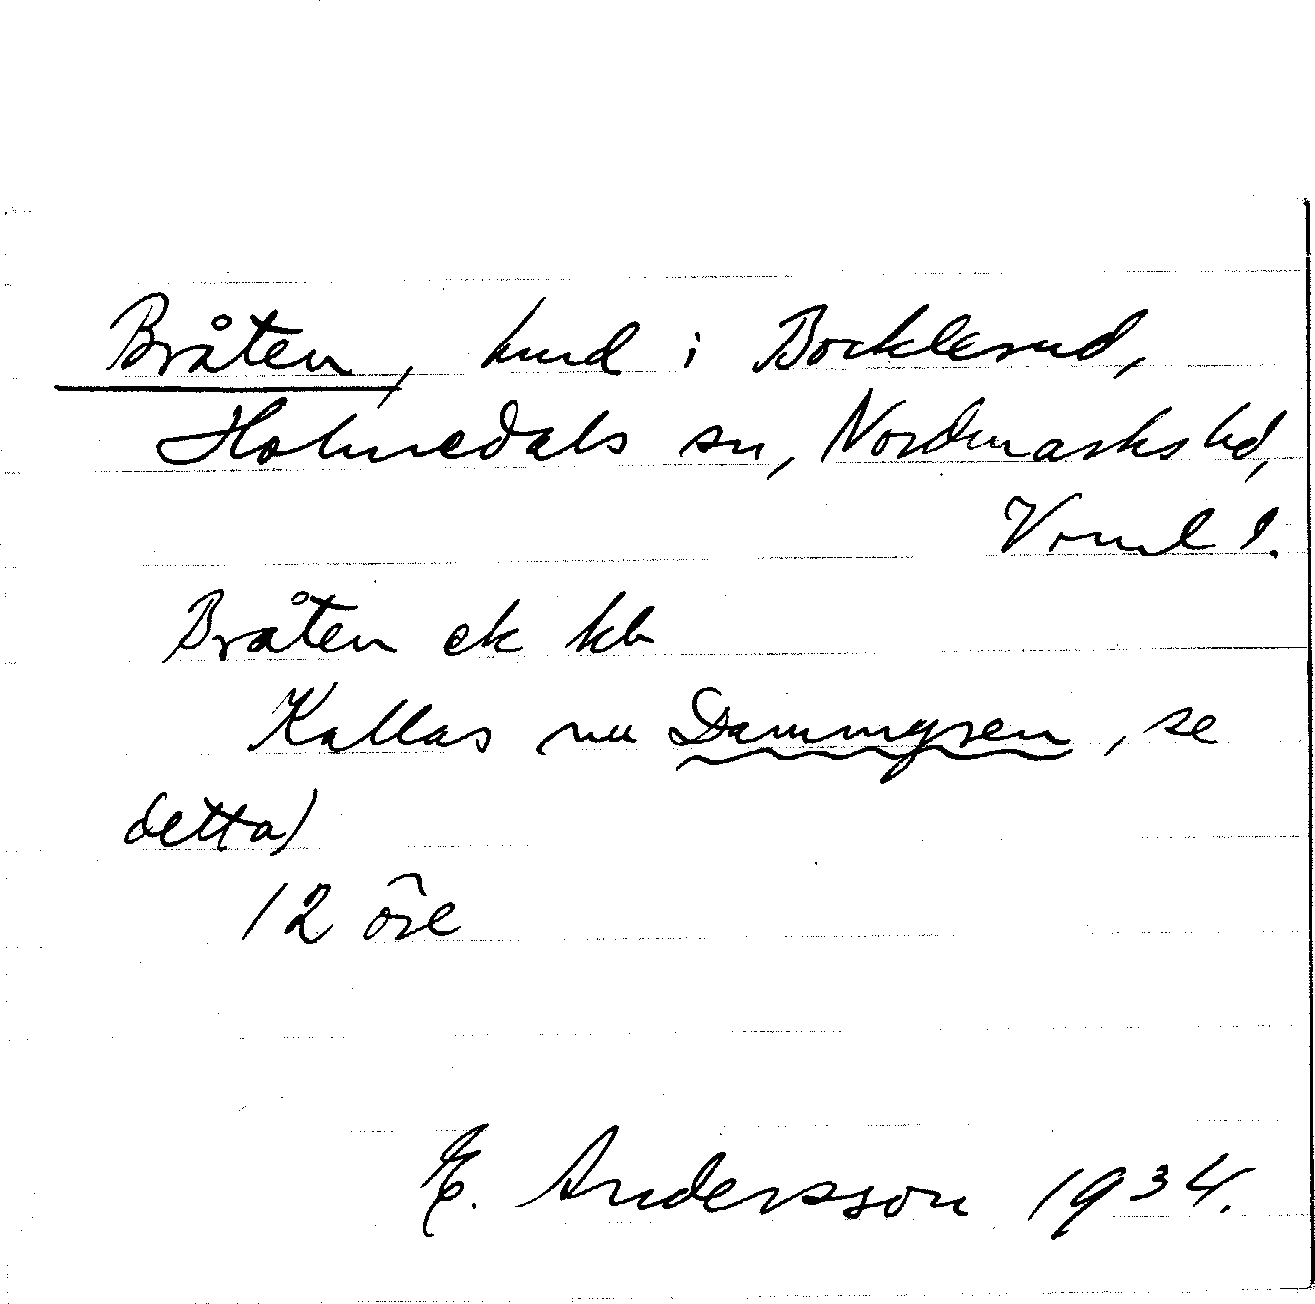 Bråten, hmd i Bocklerud,
Holmedals sn, Nordmarks hd,
Vrml l.
Bråten ek kb
Kallas nu Dammyren, se
detta)
12 öre
E. Andersson 1934.